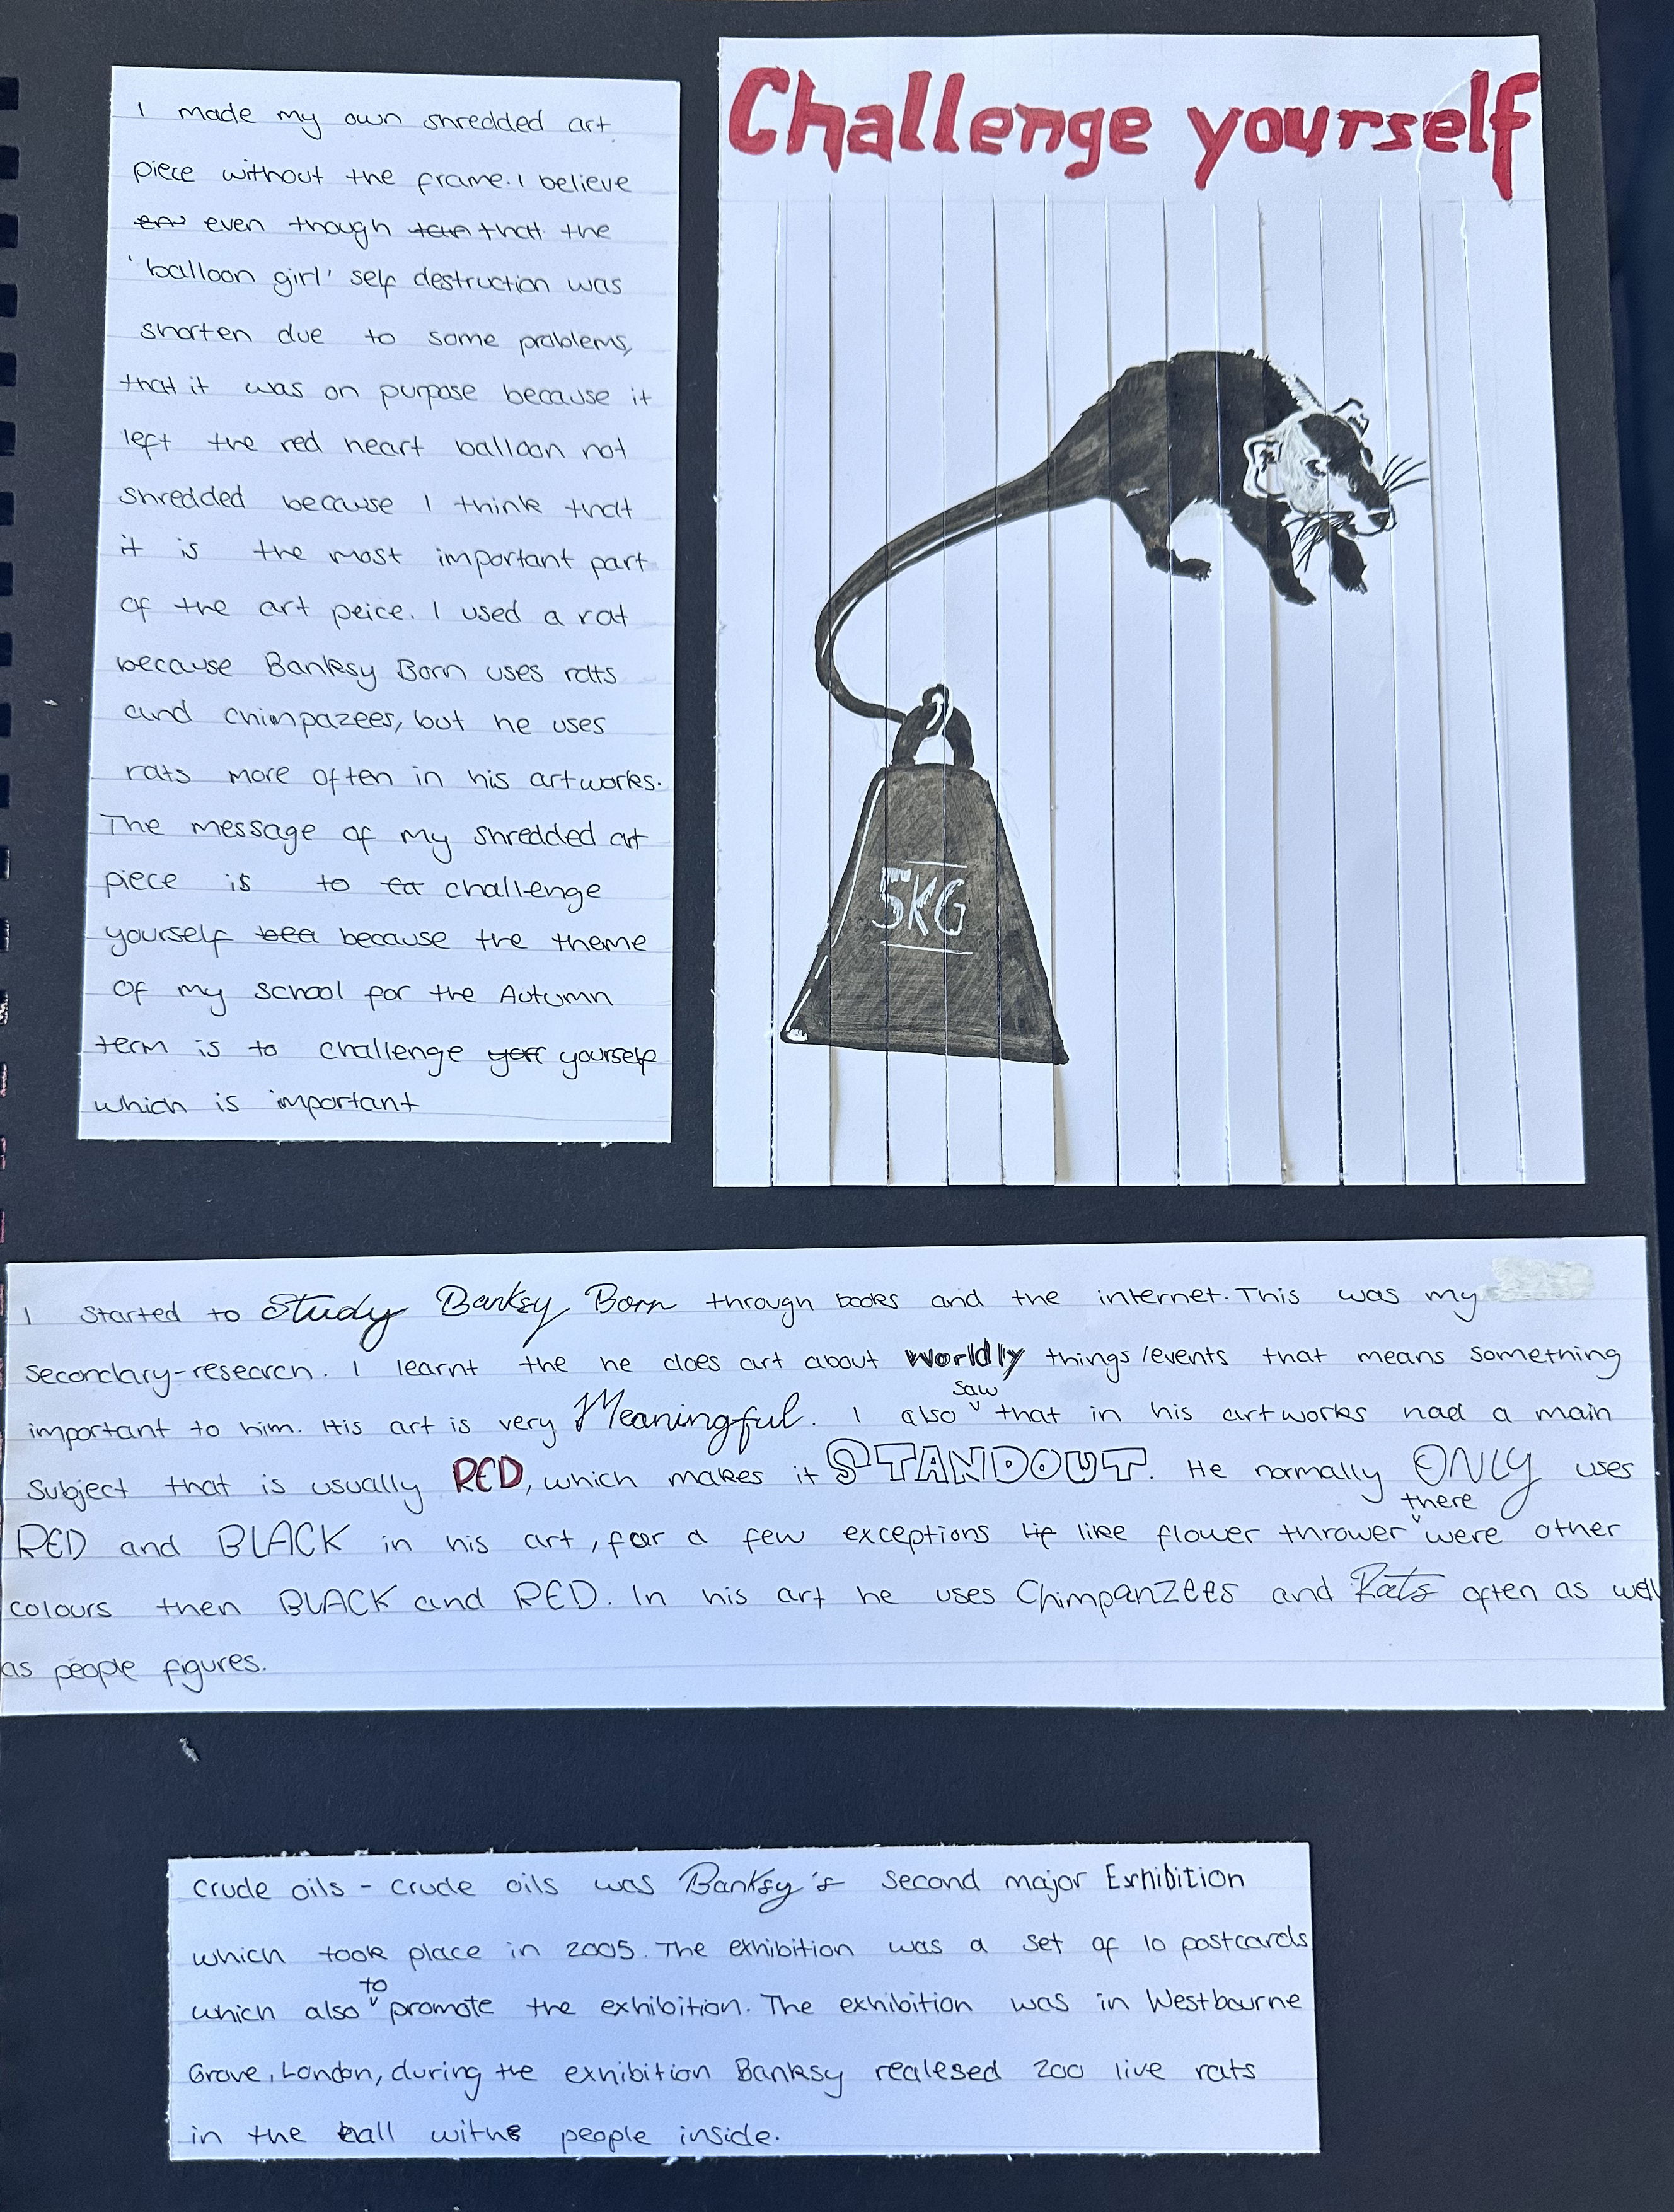 I made my own shredded art
piece without the frame. I believe
even though that the
'balloon girl' self destruction was
shorten due to some problems,
that it was on purpose because it
left the red heart balloon not
shredded because I think that
it is the most important part
of the art peice. I used a rat
because Banksy Born uses rats
and chimpazees, but he uses
rats more often in his artworks.
The message of my shredded art
piece is to challenge
yourself because the theme
of my school for the Autumn
term is to challenge yourself
which is important
Challenge yourself
5KG
I started to Study Banksy Born through books and the internet. This was my
secondary-research. I learnt the he does art about worldly things/events that means something
important to him. His art is very Meaningful. I also saw that in his artworks had a main
subject that is usually RED, which makes it STANDOUT. He normally ONLY uses
RED and BLACK in his art, for a few exceptions like flower thrower there were other
colours then BLACK and RED. In his art he uses Chimpanzees and Rats often as well
as people figures.
Crude oils - crude oils was Banksy's second major Exhibition
which took place in 2005. The exhibition was a set of 10 postcards
which also to promote the exhibition. The exhibition was in Westbourne
Grove, London, during the exhibition Banksy realesed 200 live rats
in the people inside.